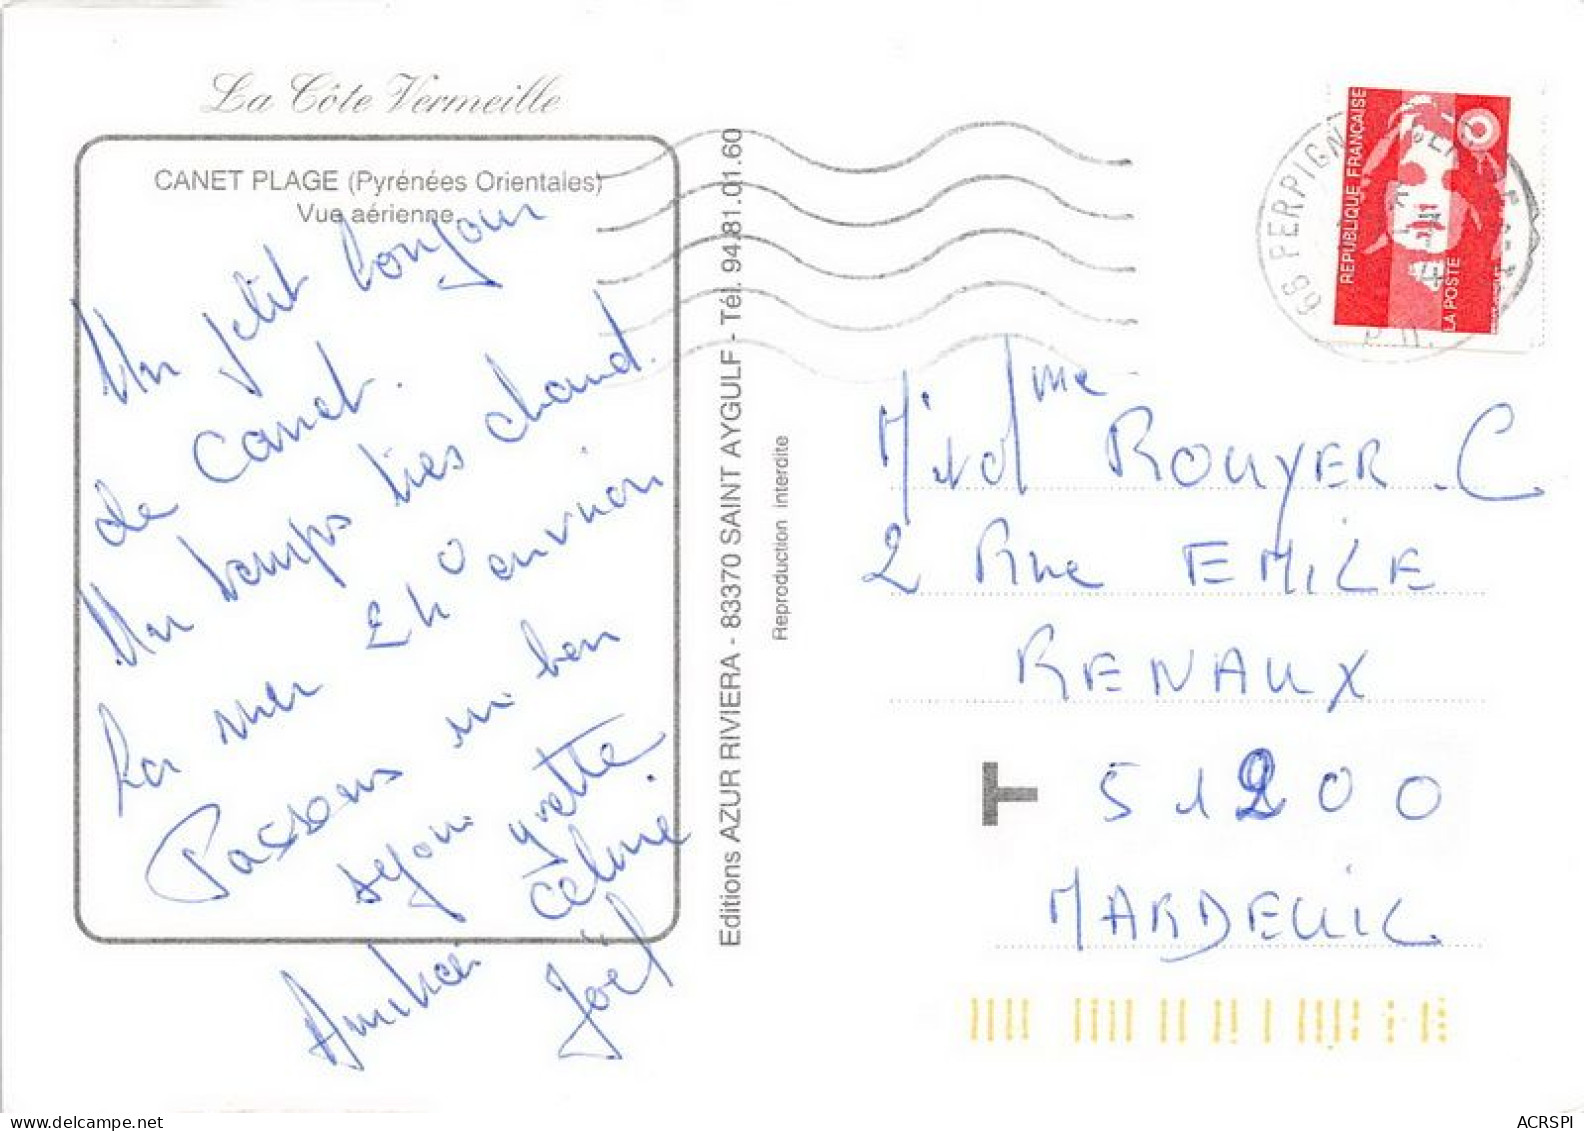 La Côte Vermeille
CANET PLAGE (Pyrénées Orientales)
Vue aérienne
Un petit bonjour
de Canet.
Un temps très chaud.
La mer est à environ
Passons un bon
séjour
Amitiés
yvette
Céline
Joël
Editions AZUR RIVIERA - 83370 SAINT AYGULF - Tél. 94.81.01.60
Reproduction interdite
66 PERPIGN
REPUBLIQUE FRANÇAISE
LA POSTE
Mr et Mme
ROUYER . C
2 Rue EMILE
RENAUX
T
51200
MARDEUIL
ACRSPI
delcampe.net